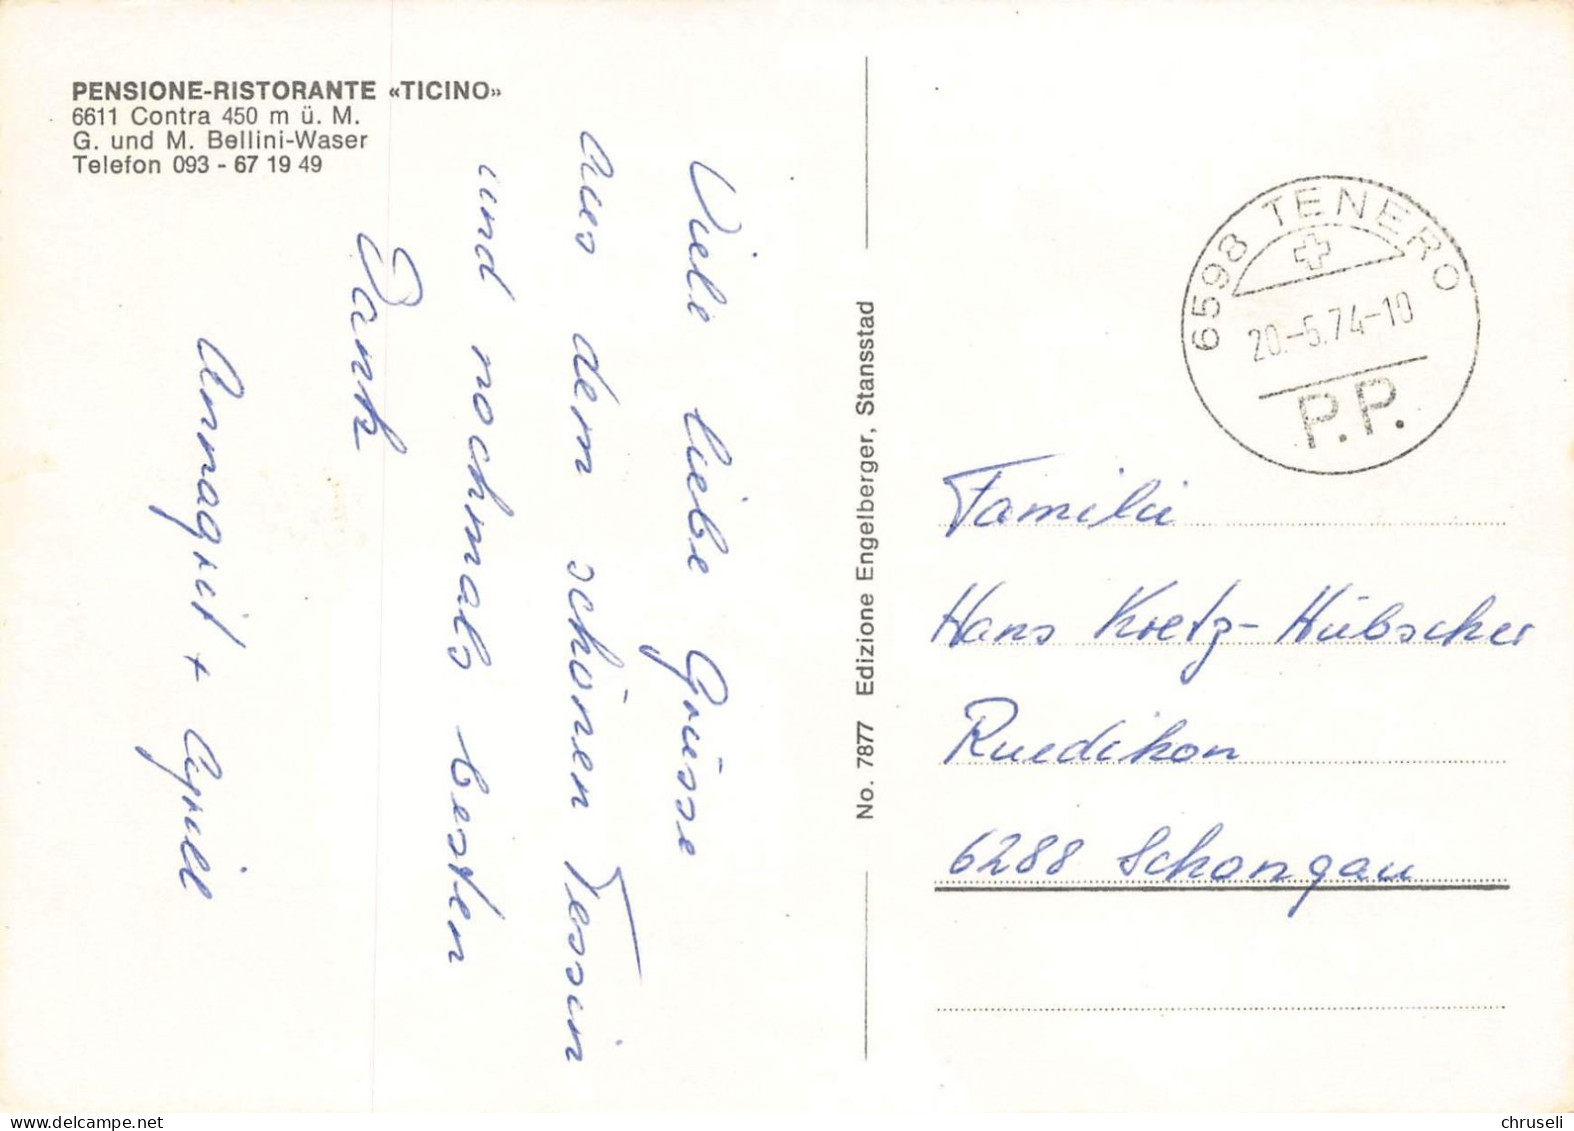 PENSIONE-RISTORANTE «TICINO»
6611 Contra 450 m ü. M.
G. und M. Bellini-Waser
Telefon 093 - 67 19 49
Viele liebe Grüsse
aus dem schönen Tessin
und nochmals besten
Dank
Annagret + Cyrill
No. 7877 Edizione Engelberger, Stansstad
6598 TENERO
20.-5.74-10
P.P.
Familie
Hans Kretz-Hübscher
Ruedikon
6288 Schongau
chruseli